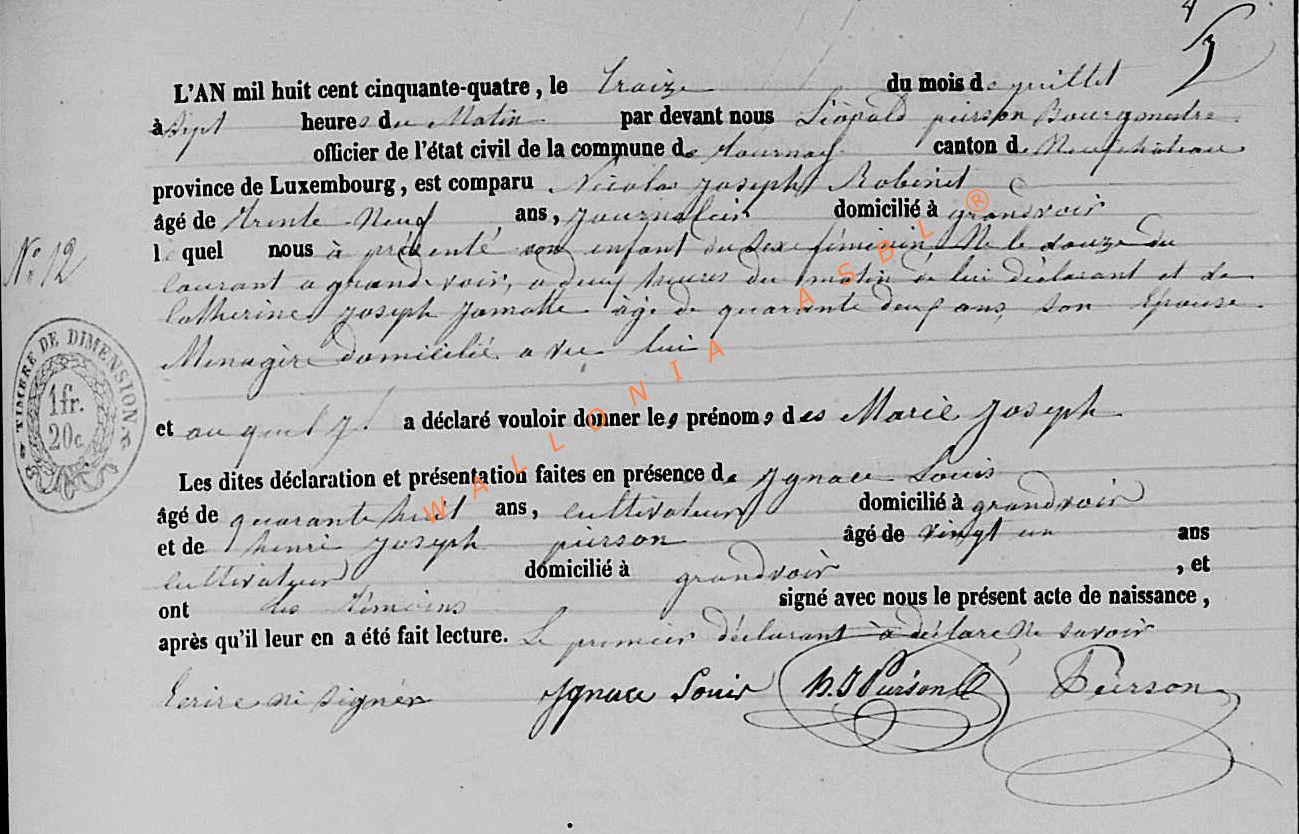 L'AN mil huit cent cinquante-quatre, le traize du mois de juillet
à sept heures du Matin par devant nous Léopold pierson Bourgmestre
officier de l'état civil de la commune de tournay canton de Neufchateau
province de Luxembourg, est comparu Nicolas joseph Robinet
âgé de trente Neuf ans, journalier domicilié à grandvoir
le quel nous à présenté un enfant du sexe féminin Né le douze du
No 12
courant a grandvoir, a deux heures du matin de lui déclarant et de
Catherine joseph jamotte âgé de quarante deux ans, son Epouse
Menagère domicilié avec lui
TIMBRE DE DIMENSION.
1fr.
20c.
et auquel il a déclaré vouloir donner les prénoms des Marie joseph
Les dites déclaration et présentation faites en présence de ignace Louis
âgé de quarante huit ans, cultivateur domicilié à grandvoir
et de henri joseph pierson âgé de vingt un ans
cultivateur domicilié à grandvoir , et
ont les témoins signé avec nous le présent acte de naissance,
après qu'il leur en a été fait lecture. Le premier déclarant à déclare Ne savoir
Ecrire ni signer Ignace Louis h. J Pierson Pierson
WALLONIA ASBL ®